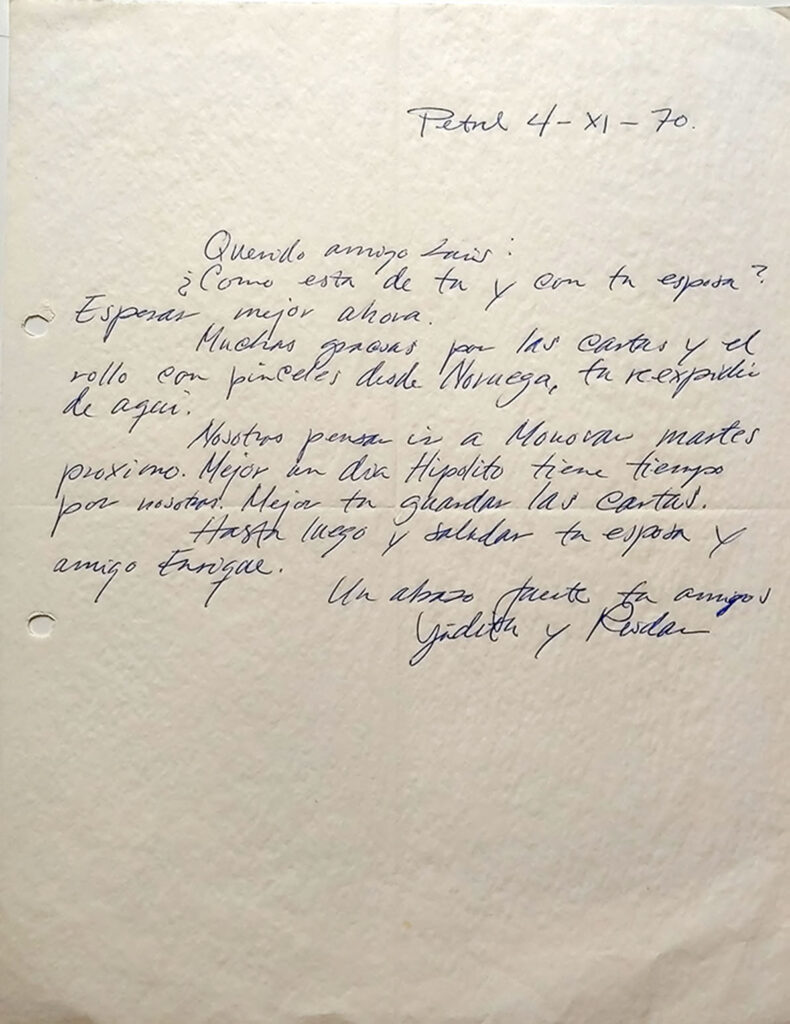 Petrel 4-XI-70.
Querido amigo Luis:
¿Como esta de tu y con tu esposa?
Esperar mejor ahora.
Muchas gracias por las cartas y el
rollo con pinceles desde Noruega, tu reexpidir
de aqui.
Nosotros pensar ir a Monovar martes
proximo. Mejor un dia Hipolito tiene tiempo
por nosotros. Mejor tu guardar las cartas.
Hasta luego y saludar tu esposa y
amigo Enrique.
Un abrazo fuerte tu amigos
y Reidar